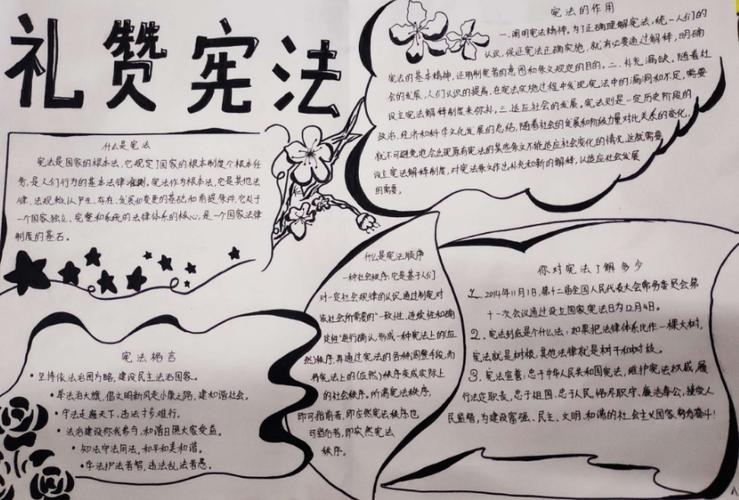 礼赞宪法
什么是宪法
宪法是国家的根本法,它规定了国家的根本制度个根本任
务,是人们行为的基本法律准则。宪法作为根本法,它是其他法
律、法规赖以产生、存在、发展和变更的基础和前提条件,它处于
一个国家独立、完整和系统的法律体系的核心,是一个国家法律
制度的基石。
宪法的作用
一、阐明宪法精神。为了正确理解宪法,统一人们的
认识,保证宪法正确实施,就有必要通过解释,明确
宪法的基本精神,证明制定者的意图和条文规定的目的。二、补充漏缺。随着社
会的发展,人们认识的提高,在宪法实施过程中发现宪法中的漏洞和不足,需要
设立宪法解释制度来弥补。三、适应社会的发展。宪法则是一定历史阶段的
政治、经济和科学文化发展的总结,随着社会的发展和阶级力量对比关系的变化,
就不可避免地会出现原有宪法的某些条文不能适应社会变化的情况,这就需要
设立宪法解释制度,对宪法条文作出补充和新的解释,以适应社会发展
的需要。
宪法格言
坚持依法治国方略,建设民主法治国家。
举法治大旗,倡文明新风走小康之路,建和谐社会。
守法走遍天下,违法寸步难行。
法治建设你我参与,和谐日照大家受益。
知法守法用法,和平和美和谐。
学法护法者智,违法乱法者愚。
什么是宪法顺序
一种社会秩序,它是基于人们
对一定社会规律的认识,通过制宪对
成社会所需要的"一致性、连续性和确
定性"进行确认,形成一种宪法上的(应
然)秩序,再通过宪法的各种调整手段,而
将宪法上的(应然)秩序变成实际上
的社会秩序。所谓宪法秩序,
即可指前者,即应然宪法秩序也
可指后者,即实然宪法
秩序。
你对宪法了解多少
1、2014年11月1日,第十二届全国人民代表大会常务委员会第
十一次会议通过设立国家宪法日为12月4日。
2、宪法到底是个什么法:如果把法律体系比作一棵大树,
宪法就是树根,其他法律就是树干和树枝。
3、宪法宣誓:忠于中华人民共和国宪法,维护宪法权威,履
行法定职责,忠于祖国、忠于人民,恪尽职守、廉洁奉公,接受人
民监督,为建设富强、民主、文明、和谐的社会主义国家努力奋斗!